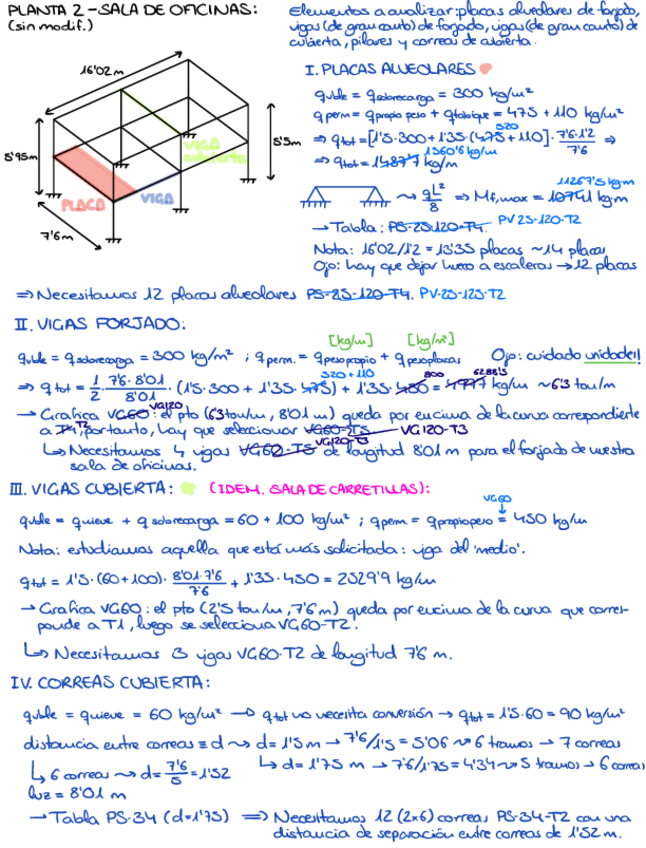 PLANTA 2 - SALA DE OFICINAS:
(sin modif.)
Elementos a analizar: placas alveolares de forjado,
vigas (de gran canto) de forjado, vigas (de gran canto) de
cubierta, pilares y correas de cubierta.
16'02m
5'95m
5'5m
7'6m
VIGA
cubierta
PLACA
VIGA
I. PLACAS ALVEOLARES
qvble = qsobrecarga = 300 kg/m²
qperm = qpropio peso + qtabique = 475 + 110 kg/m²
520
⇒ qtot = [1'5·300 + 1'35·(475 + 110)] · 7'6·1'2/7'6 ⇒
1360'6 kg/m
⇒ qtot = 1487'7 kg/m
11267'5 kgm
⤳ qL²/8 ⇒ Mf,max = 10741 kgm
→ Tabla: PS-25·120-T4. PV 25-120-T2
Nota: 16'02/1'2 = 13'35 placas ~14 placas
Ojo: hay que dejar hueco a escaleras → 12 placas
⇒ Necesitamos 12 placas alveolares PS-25-120-T4. PV-25-125-T2
II. VIGAS FORJADO:
[kg/m] [kg/m²]
qvble = qsobrecarga = 300 kg/m² ; qperm. = qpesopropio + qpesoplacas Ojo: cuidado unidades!!
520+110 800 6288'5
⇒ qtot = 1/2 · 7'6·8'01/8'01 · (1'5·300 + 1'35·475) + 1'35·450 = 4777 kg/m ~6'3 ton/m
→ Gráfica VG60 VG120: el pto (6'3 ton/m, 8'01 m) queda por encima de la curva correspondiente
a T4 T2, por tanto, hay que seleccionar VG60-T5 VG120-T3
↳ Necesitamos 4 vigas VG60-T5 VG120-T3 de longitud 8'01 m para el forjado de nuestra
sala de oficinas.
III. VIGAS CUBIERTA: (IDEM. SALA DE CARRETILLAS):
VG60
qvble = qnieve + qsobrecarga = 60 + 100 kg/m² ; qperm = qpropiopeso = 450 kg/m
Nota: estudiamos aquella que está más solicitada: viga del 'medio'.
qtot = 1'5·(60+100)· 8'01·7'6/7'6 + 1'35·450 = 2529'9 kg/m
→ Gráfica VG60: el pto (2'5 ton/m, 7'6 m) queda por encima de la curva que corres-
ponde a T1, luego se selecciona VG60-T2.
↳ Necesitamos 3 vigas VG60-T2 de longitud 7'6 m.
IV. CORREAS CUBIERTA:
qvble = qnieve = 60 kg/m² → qtot no necesita conversión → qtot = 1'5·60 = 90 kg/m²
distancia entre correas ≡ d ⤳ d = 1'5 m → 7'6/1'5 = 5'06 ⤳ 6 tramos → 7 correas
↳ 6 correas ⤳ d = 7'6/5 = 1'52 ↳ d = 1'75 m → 7'6/1'75 = 4'34 ⤳ 5 tramos → 6 correas
luz = 8'01 m
→ Tabla PS-34 (d=1'75) ⇒ Necesitamos 12 (2x6) correas PS-34-T2 con una
distancia de separación entre correas de 1'52 m.